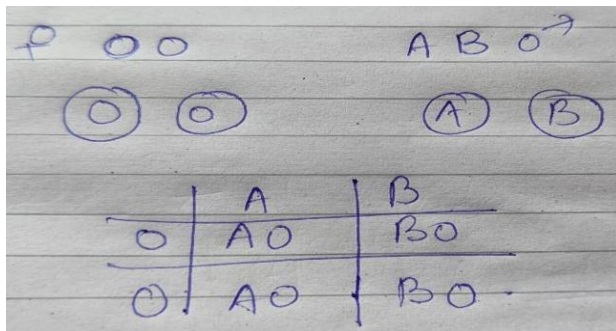 ♀ O O A B ♂
O O A B
A B
O AO BO
O AO BO